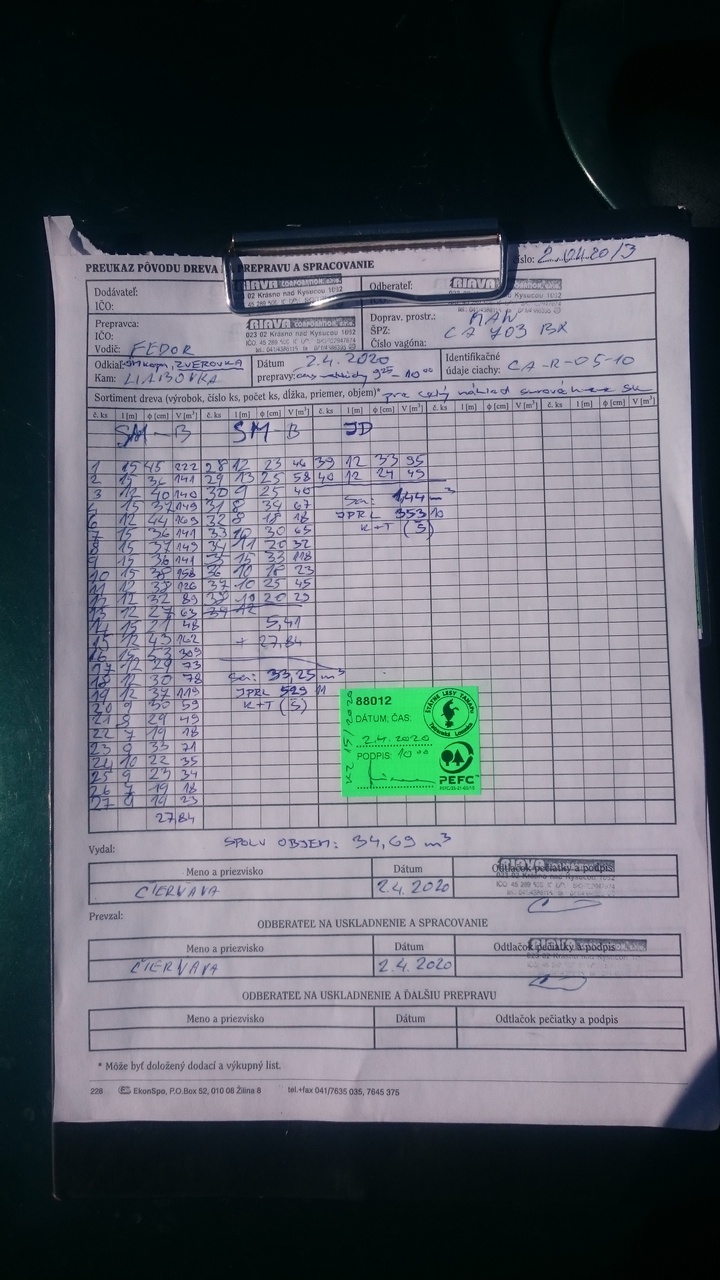 PREUKAZ PÔVODU DREVA NA PREPRAVU A SPRACOVANIE
Číslo: 2.04.20/3
Dodávateľ:
IČO:
RIAVA CORPORATION, s.r.o.
02 Krásno nad Kysucou 1692
Odberateľ:
RIAVA CORPORATION, s.r.o.
Prepravca:
IČO:
RIAVA CORPORATION, s.r.o.
023 02 Krásno nad Kysucou 1692
Vodič: FEDOR
Doprav. prostr.: MAN
ŠPZ: CA 703 BR
Číslo vagóna:
Odkiaľ: ZVEROVKA
Kam:
Dátum 2.4.2020
prepravy: 9 25 - 10 00
Identifikačné
údaje ciachy: CA-R-05-10
Sortiment dreva (výrobok, číslo ks, počet ks, dĺžka, priemer, objem)* pre celý náklad
č. ks l [m] φ [cm] V [m³] č. ks l [m] φ [cm] V [m³] č. ks l [m] φ [cm] V [m³] č. ks l [m] φ [cm] V [m³] č. ks l [m] φ [cm] V [m³]
SM - B SM B JD
1 15 45 222 28 12 23 46 39 12 33 95
2 15 36 141 29 13 25 58 40 12 24 49
3 12 40 140 30 9 25 40
15 37 149 31 8 34 67
6 12 44 169 32 8 18 18
7 15 36 141 33 10 30 65
8 15 37 149 34 11 20 32
9 15 36 141 15 33 118
10 15 38 158 18 23
11 12 38 126 37 10 25 45
12 12 32 89 38 20 29
13 12 27 63
14 15 21 48 5,41
15 12 43 162 + 27,84
16 15 53 309
17 12 29 73
18 12 30 78 33,25 m³
19 12 37 119 JPRL 529 11
20 9 30 59 K+T (S)
21 8 29 49
22 7 19 18
23 9 33 71
24 10 22 35
25 9 23 34
26 7 19 18
27 9 19 23
27,84
1,44 m³
JPRL 353 10
K+T (S)
88012
ŠTÁTNE LESY TANAPU
Tatranská Lomnica
DÁTUM, ČAS:
2.4.2020
PODPIS: 10 00
PEFC
SPOLU OBJEM: 34,69 m³
Vydal:
Meno a priezvisko Dátum Odtlačok pečiatky a podpis
ČIERVAVA 2.4.2020
RIAVA
Prevzal:
ODBERATEĽ NA USKLADNENIE A SPRACOVANIE
Meno a priezvisko Dátum Odtlačok pečiatky a podpis
ČIERVAVA 2.4.2020
RIAVA
ODBERATEĽ NA USKLADNENIE A ĎALŠIU PREPRAVU
Meno a priezvisko Dátum Odtlačok pečiatky a podpis
* Môže byť doložený dodací a výkupný list.
228 EkonSpo, P.O.Box 52, 010 08 Žilina 8 tel.+fax 041/7635 035, 7645 375